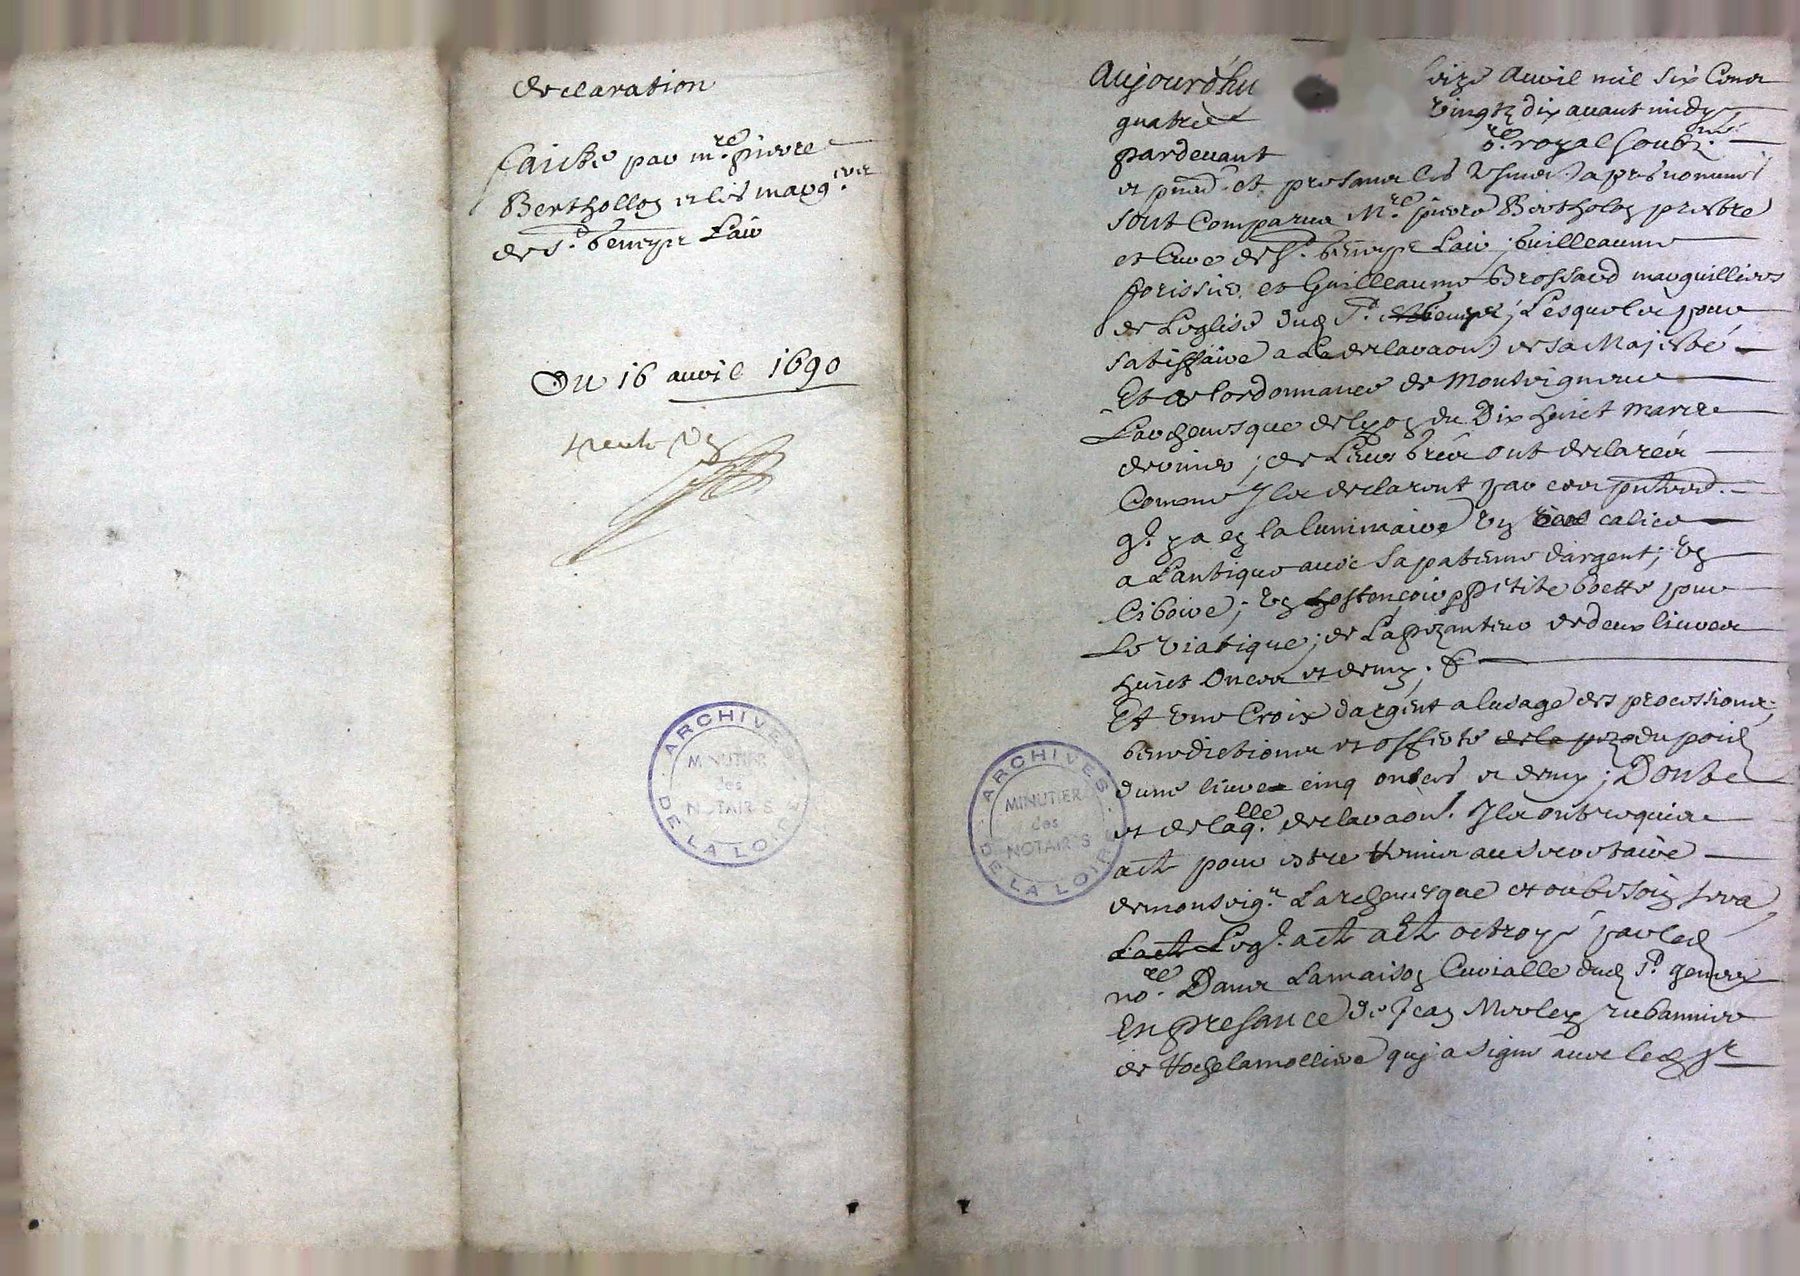 declaration
faicte par mre pierre
Berthollon et les margers
de St genest Lair
Du 16 auril 1690
ARCHIVES DE LA LOIRE
MINUTIER
des
NOTAIRES
Aujourdhuy seize Auril mil six Cent
quatre vingtz dix auant midy
pardeuant re royal soubzné
et presance les tesmoins apres nommes
sont Comparus Mre pierre Bertholon prebtre
et Cure de St genest Lair, guilleaume
forissier et Guilleaume Brossard marguilliers
de Leglise dud St genest, Lesquels pour
satisffaire a La declaraon de sa Majesté
Et de lordonnance de Monseigneur
Larcheuesque de Lyon du Dix huict mars
dernier, de Leurs grés ont declarés
Comme Ils declarent par ces pntes
ql y a en la luminaire Un calice
a Lantique auec sa patenne dargent; Un
Ciboire; Un petite boette pour
Le viatique; de La pezanteur de deux liures
huict Onces et demy. &
Et une Croix dargent a lusage des processions,
benedictions et offices de la peza du poids
dune liure cinq onces et demy; Donte
et de laqlle declaraon. Ils ont requis
act pour estre remis au secretaire
de monseigr Larcheuesque et ou besoin sera,
Lact Leql act a esté octroyé par led
nore Dans La maison Curialle dud St genest
En presance de Jean Merley rubannier
de Rochelamolliere quj a signe auec led sr
ARCHIVES DE LA LOIRE
MINUTIER
des
NOTAIRES